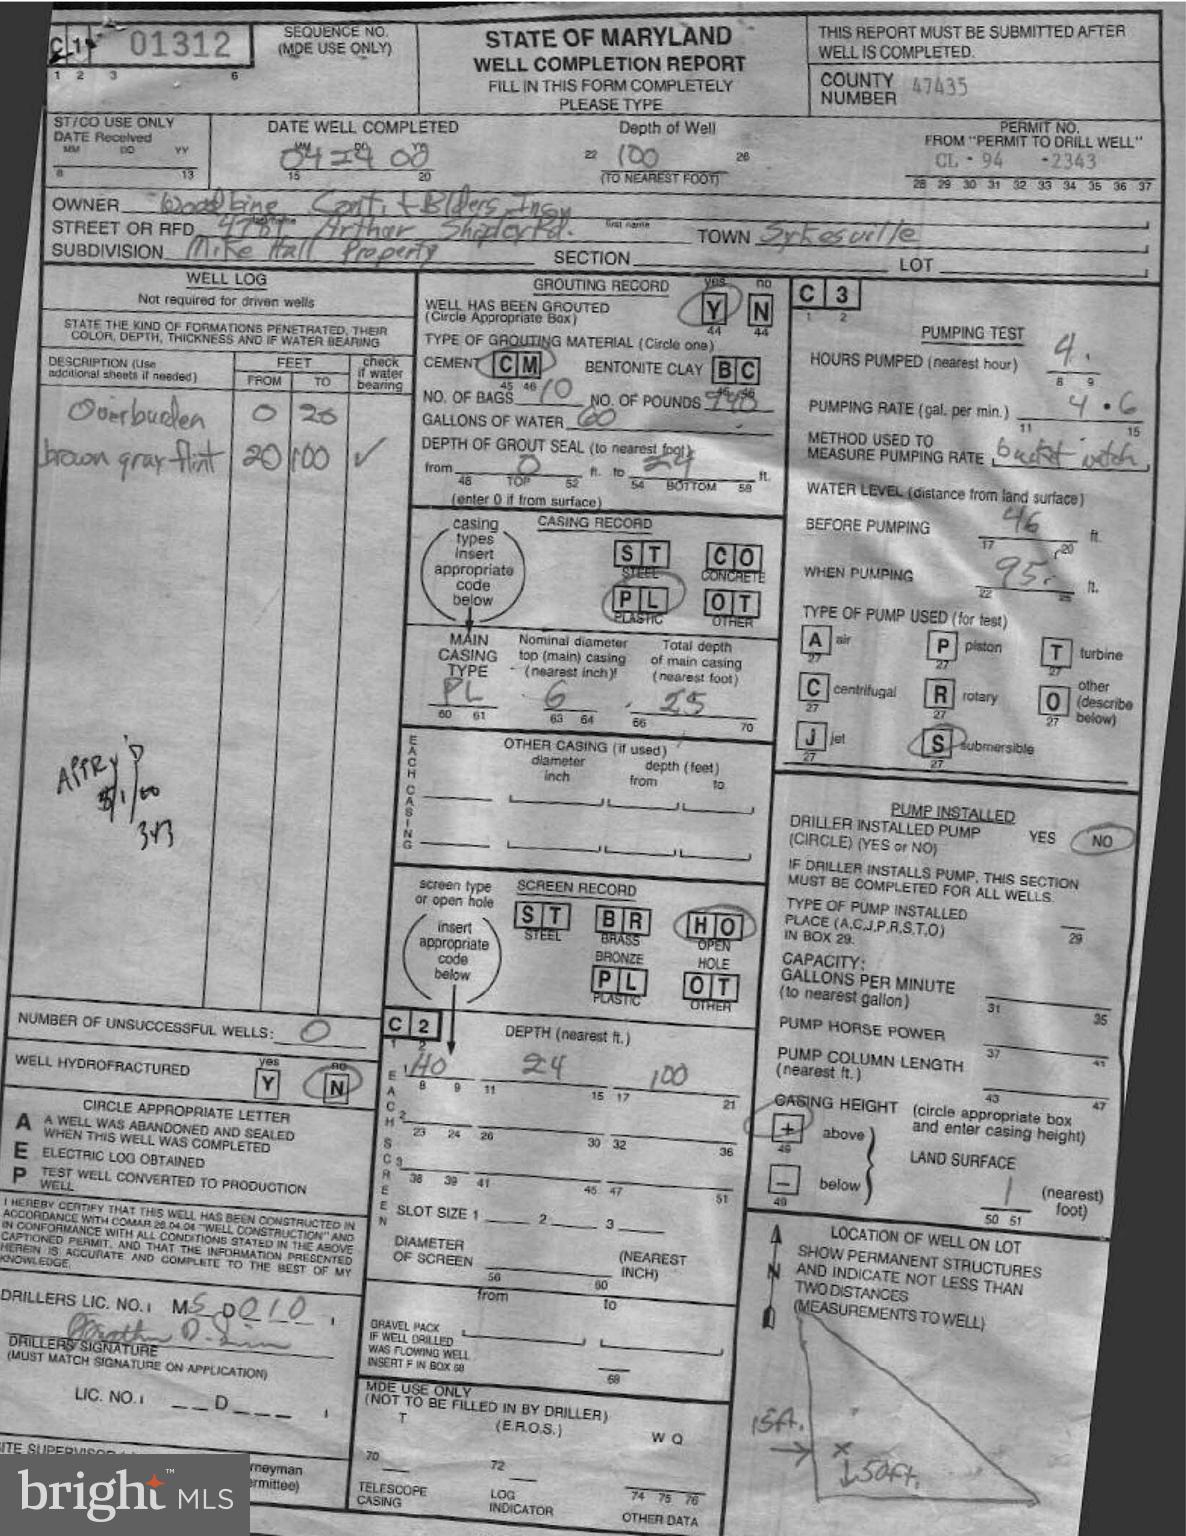 C 1 01312
SEQUENCE NO.
(MDE USE ONLY)
1 2 3 6
STATE OF MARYLAND
WELL COMPLETION REPORT
FILL IN THIS FORM COMPLETELY
PLEASE TYPE
THIS REPORT MUST BE SUBMITTED AFTER
WELL IS COMPLETED.
COUNTY
NUMBER 47435
ST/CO USE ONLY
DATE Received
MM DD YY
8 13
DATE WELL COMPLETED
04 24 00
15 20
Depth of Well
22 100 26
(TO NEAREST FOOT)
PERMIT NO.
FROM "PERMIT TO DRILL WELL"
CL - 94 -2343
28 29 30 31 32 33 34 35 36 37
OWNER Woodbine Cont. + Blders
first name
STREET OR RFD Arthur Shipley Rd. TOWN Sykesville
SUBDIVISION Mike Hall Property SECTION LOT
WELL LOG
Not required for driven wells
STATE THE KIND OF FORMATIONS PENETRATED, THEIR
COLOR, DEPTH, THICKNESS AND IF WATER BEARING
DESCRIPTION (Use
additional sheets if needed)
FEET
FROM TO
check
if water
bearing
Overburden 0 20
brown gray flint 20 100 ✓
5/1/00
343
NUMBER OF UNSUCCESSFUL WELLS: 0
WELL HYDROFRACTURED yes Y no N
CIRCLE APPROPRIATE LETTER
A A WELL WAS ABANDONED AND SEALED
WHEN THIS WELL WAS COMPLETED
E ELECTRIC LOG OBTAINED
P TEST WELL CONVERTED TO PRODUCTION
WELL
I HEREBY CERTIFY THAT THIS WELL HAS BEEN CONSTRUCTED IN
ACCORDANCE WITH COMAR 26.04.04 "WELL CONSTRUCTION" AND
IN CONFORMANCE WITH ALL CONDITIONS STATED IN THE ABOVE
CAPTIONED PERMIT, AND THAT THE INFORMATION PRESENTED
HEREIN IS ACCURATE AND COMPLETE TO THE BEST OF MY
KNOWLEDGE.
DRILLERS LIC. NO. MS D 010
DRILLERS SIGNATURE
(MUST MATCH SIGNATURE ON APPLICATION)
LIC. NO. D
rneyman
rmittee)
GROUTING RECORD
yes no
WELL HAS BEEN GROUTED
(Circle Appropriate Box)
Y N
44 44
TYPE OF GROUTING MATERIAL (Circle one)
CEMENT C M BENTONITE CLAY B C
45 46 45 46
NO. OF BAGS 10 NO. OF POUNDS 940
GALLONS OF WATER 60
DEPTH OF GROUT SEAL (to nearest foot)
from 0 ft. to 24 ft.
48 TOP 52 54 BOTTOM 58
(enter 0 if from surface)
casing
types
insert
appropriate
code
below
CASING RECORD
S T STEEL
C O CONCRETE
P L PLASTIC
O T OTHER
MAIN
CASING
TYPE
Nominal diameter
top (main) casing
(nearest inch)!
Total depth
of main casing
(nearest foot)
PL 6 25
60 61 63 64 66 70
EACH CASING
OTHER CASING (if used)
diameter depth (feet)
inch from to
screen type
or open hole
insert
appropriate
code
below
SCREEN RECORD
S T STEEL
B R BRASS
BRONZE
H O OPEN
HOLE
P L PLASTIC
O T OTHER
C 2
1 2
DEPTH (nearest ft.)
EACH SCREEN
1 HO 24 100
8 9 11 15 17 21
2
23 24 26 30 32 36
3
38 39 41 45 47 51
SLOT SIZE 1 2 3
DIAMETER
OF SCREEN
(NEAREST
INCH)
56 60
from to
GRAVEL PACK
IF WELL DRILLED
WAS FLOWING WELL
INSERT F IN BOX 68
68
MDE USE ONLY
(NOT TO BE FILLED IN BY DRILLER)
T (E.R.O.S.) W Q
70 72 74 75 76
TELESCOPE
CASING
LOG
INDICATOR
OTHER DATA
C 3
1 2
PUMPING TEST
HOURS PUMPED (nearest hour) 4.
8 9
PUMPING RATE (gal. per min.) 4.6
11 15
METHOD USED TO
MEASURE PUMPING RATE bucket watch
WATER LEVEL (distance from land surface)
BEFORE PUMPING 46 ft.
17 20
WHEN PUMPING 95. ft.
22 25
TYPE OF PUMP USED (for test)
A air P piston T turbine
27 27 27
C centrifugal R rotary O other
(describe
below)
27 27 27
J jet S submersible
27 27
PUMP INSTALLED
DRILLER INSTALLED PUMP YES NO
(CIRCLE) (YES or NO)
IF DRILLER INSTALLS PUMP, THIS SECTION
MUST BE COMPLETED FOR ALL WELLS.
TYPE OF PUMP INSTALLED
PLACE (A,C,J,P,R,S,T,O)
IN BOX 29.
29
CAPACITY:
GALLONS PER MINUTE
(to nearest gallon)
31 35
PUMP HORSE POWER
37 41
PUMP COLUMN LENGTH
(nearest ft.)
43 47
CASING HEIGHT (circle appropriate box
and enter casing height)
+ above
49
LAND SURFACE
− below
49
1 (nearest)
foot)
50 51
N
LOCATION OF WELL ON LOT
SHOW PERMANENT STRUCTURES
AND INDICATE NOT LESS THAN
TWO DISTANCES
(MEASUREMENTS TO WELL)
15ft.
50ft.
bright™ MLS